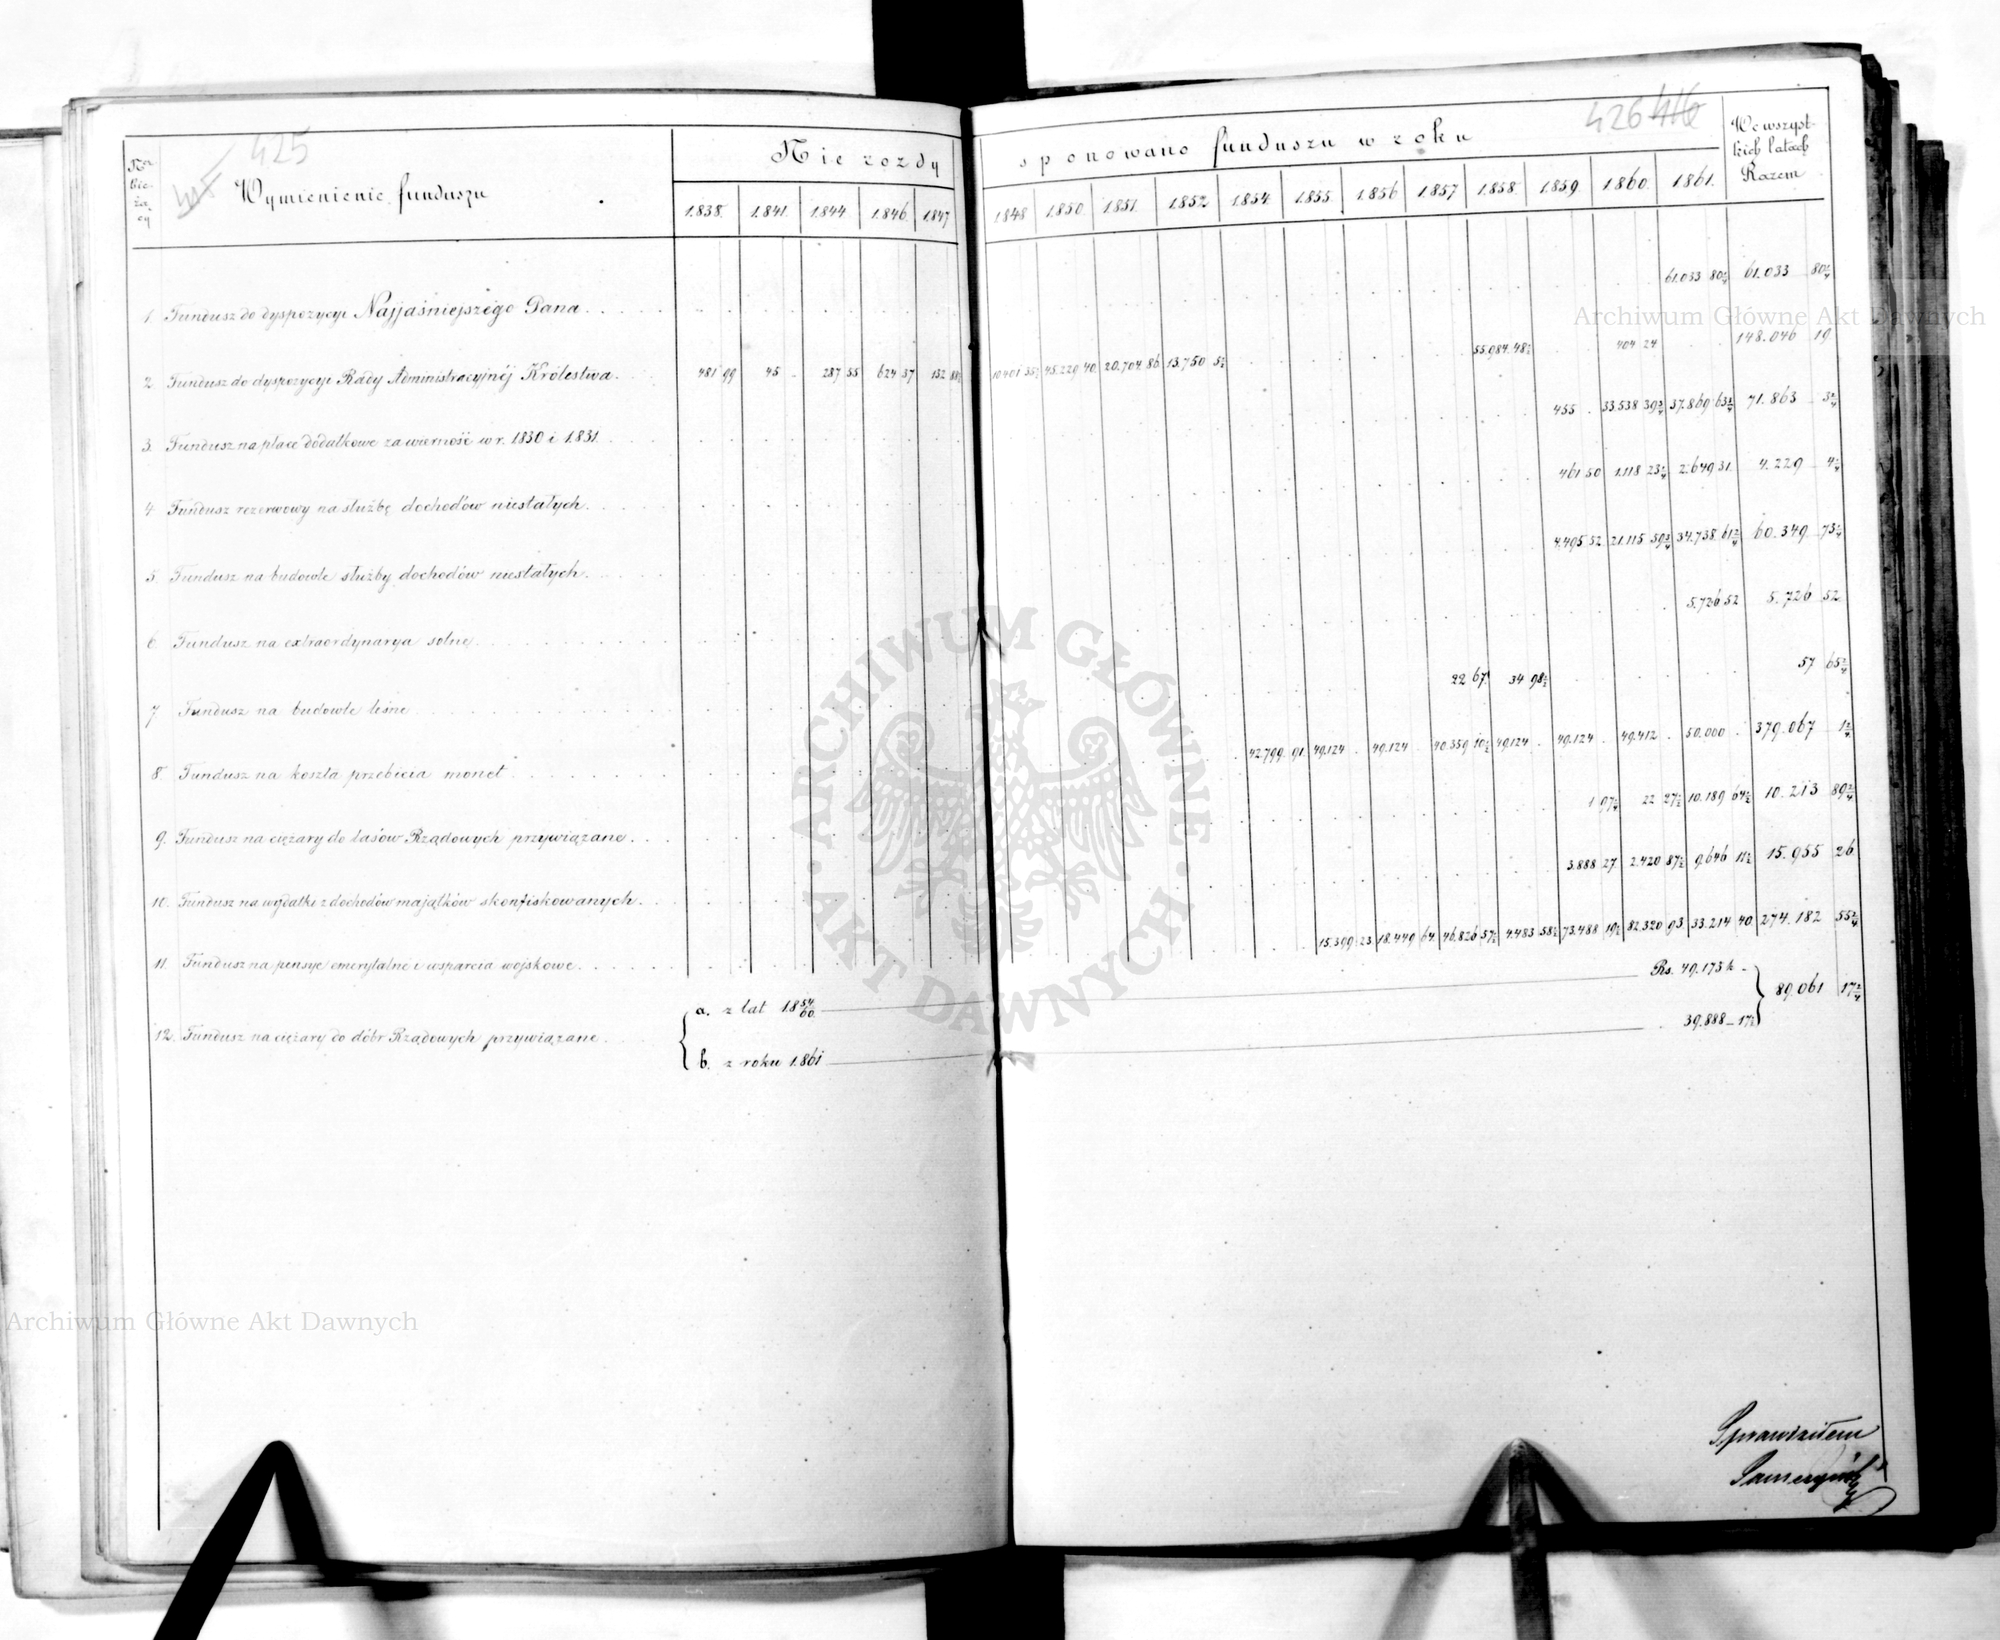 425
426 416
Na bie- żą- cy
Wymienienie funduszu
Nie rozdy sponowano funduszu w roku
We wszyst- kich latach Razem
1838. 1841. 1844. 1846. 1847 1848 1850. 1851. 1852 1854. 1855. 1856 1857 1858. 1859. 1860. 1861.
1. Fundusz do dyspozycyi Najjaśniejszego Pana 61.033 80 2/4 61.033 80 2/4
2. Fundusz do dyspozycyi Rady Administracyjnéj Królestwa. 481 99 45 287 55 624 37 152 10401 45.229 40. 20.704. 86 13.750 5½ 55.984. 48½ 404 24 148.046 19
3. Fundusz na płace dodatkowe za wierność w r. 1830 i 1831. 455 33.538 39 3/4 37.869 63 3/4 71.863 3 2/4
4. Fundusz rezerwowy na służbę dochodów niestałych. 461 50 1.118 23 2/4 2.649 31. 4.229 4 2/4
5. Fundusz na budowle służby dochodów niestałych. 4.495 52 21.115 59 3/4 34.738 61 3/4 60.349 73 2/4
6. Fundusz na extraordynarya solne. 5.726 52 5.726 52
7. Fundusz na budowle leśne 22 67. 34 98½ 57 65 2/4
8. Fundusz na koszta przebicia monet 42.799. 91. 49.124 49.124 40.359 10½ 49.124 49.124 49.412 50.000 379.067 1 2/4
9. Fundusz na ciężary do lasów Rządowych przywiązane. 1 97 2/4 22 27½ 10.189 64½ 10.213 89 2/4
10. Fundusz na wydatki z dochodów majątków skonfiskowanych. 3.888 27 2.420 87½ 9.646 11½ 15.955 26
11. Fundusz na pensye emerytalne i wsparcia wojskowe. 15.399 23 18.449 64 46.826 57½ 4.483 58½ 73.488 19½ 82.320 93 33.214 40 274.182 55 2/4
12. Fundusz na ciężary do dóbr Rządowych przywiązane.
a. z lat 18 54/60. Rs. 49.173 k -
b. z roku 1861 39.888 - 17½
89.061 17 2/4
Sprawdziłem
Archiwum Główne Akt Dawnych
Archiwum Główne Akt Dawnych
· ARCHIWUM GŁÓWNE · AKT DAWNYCH